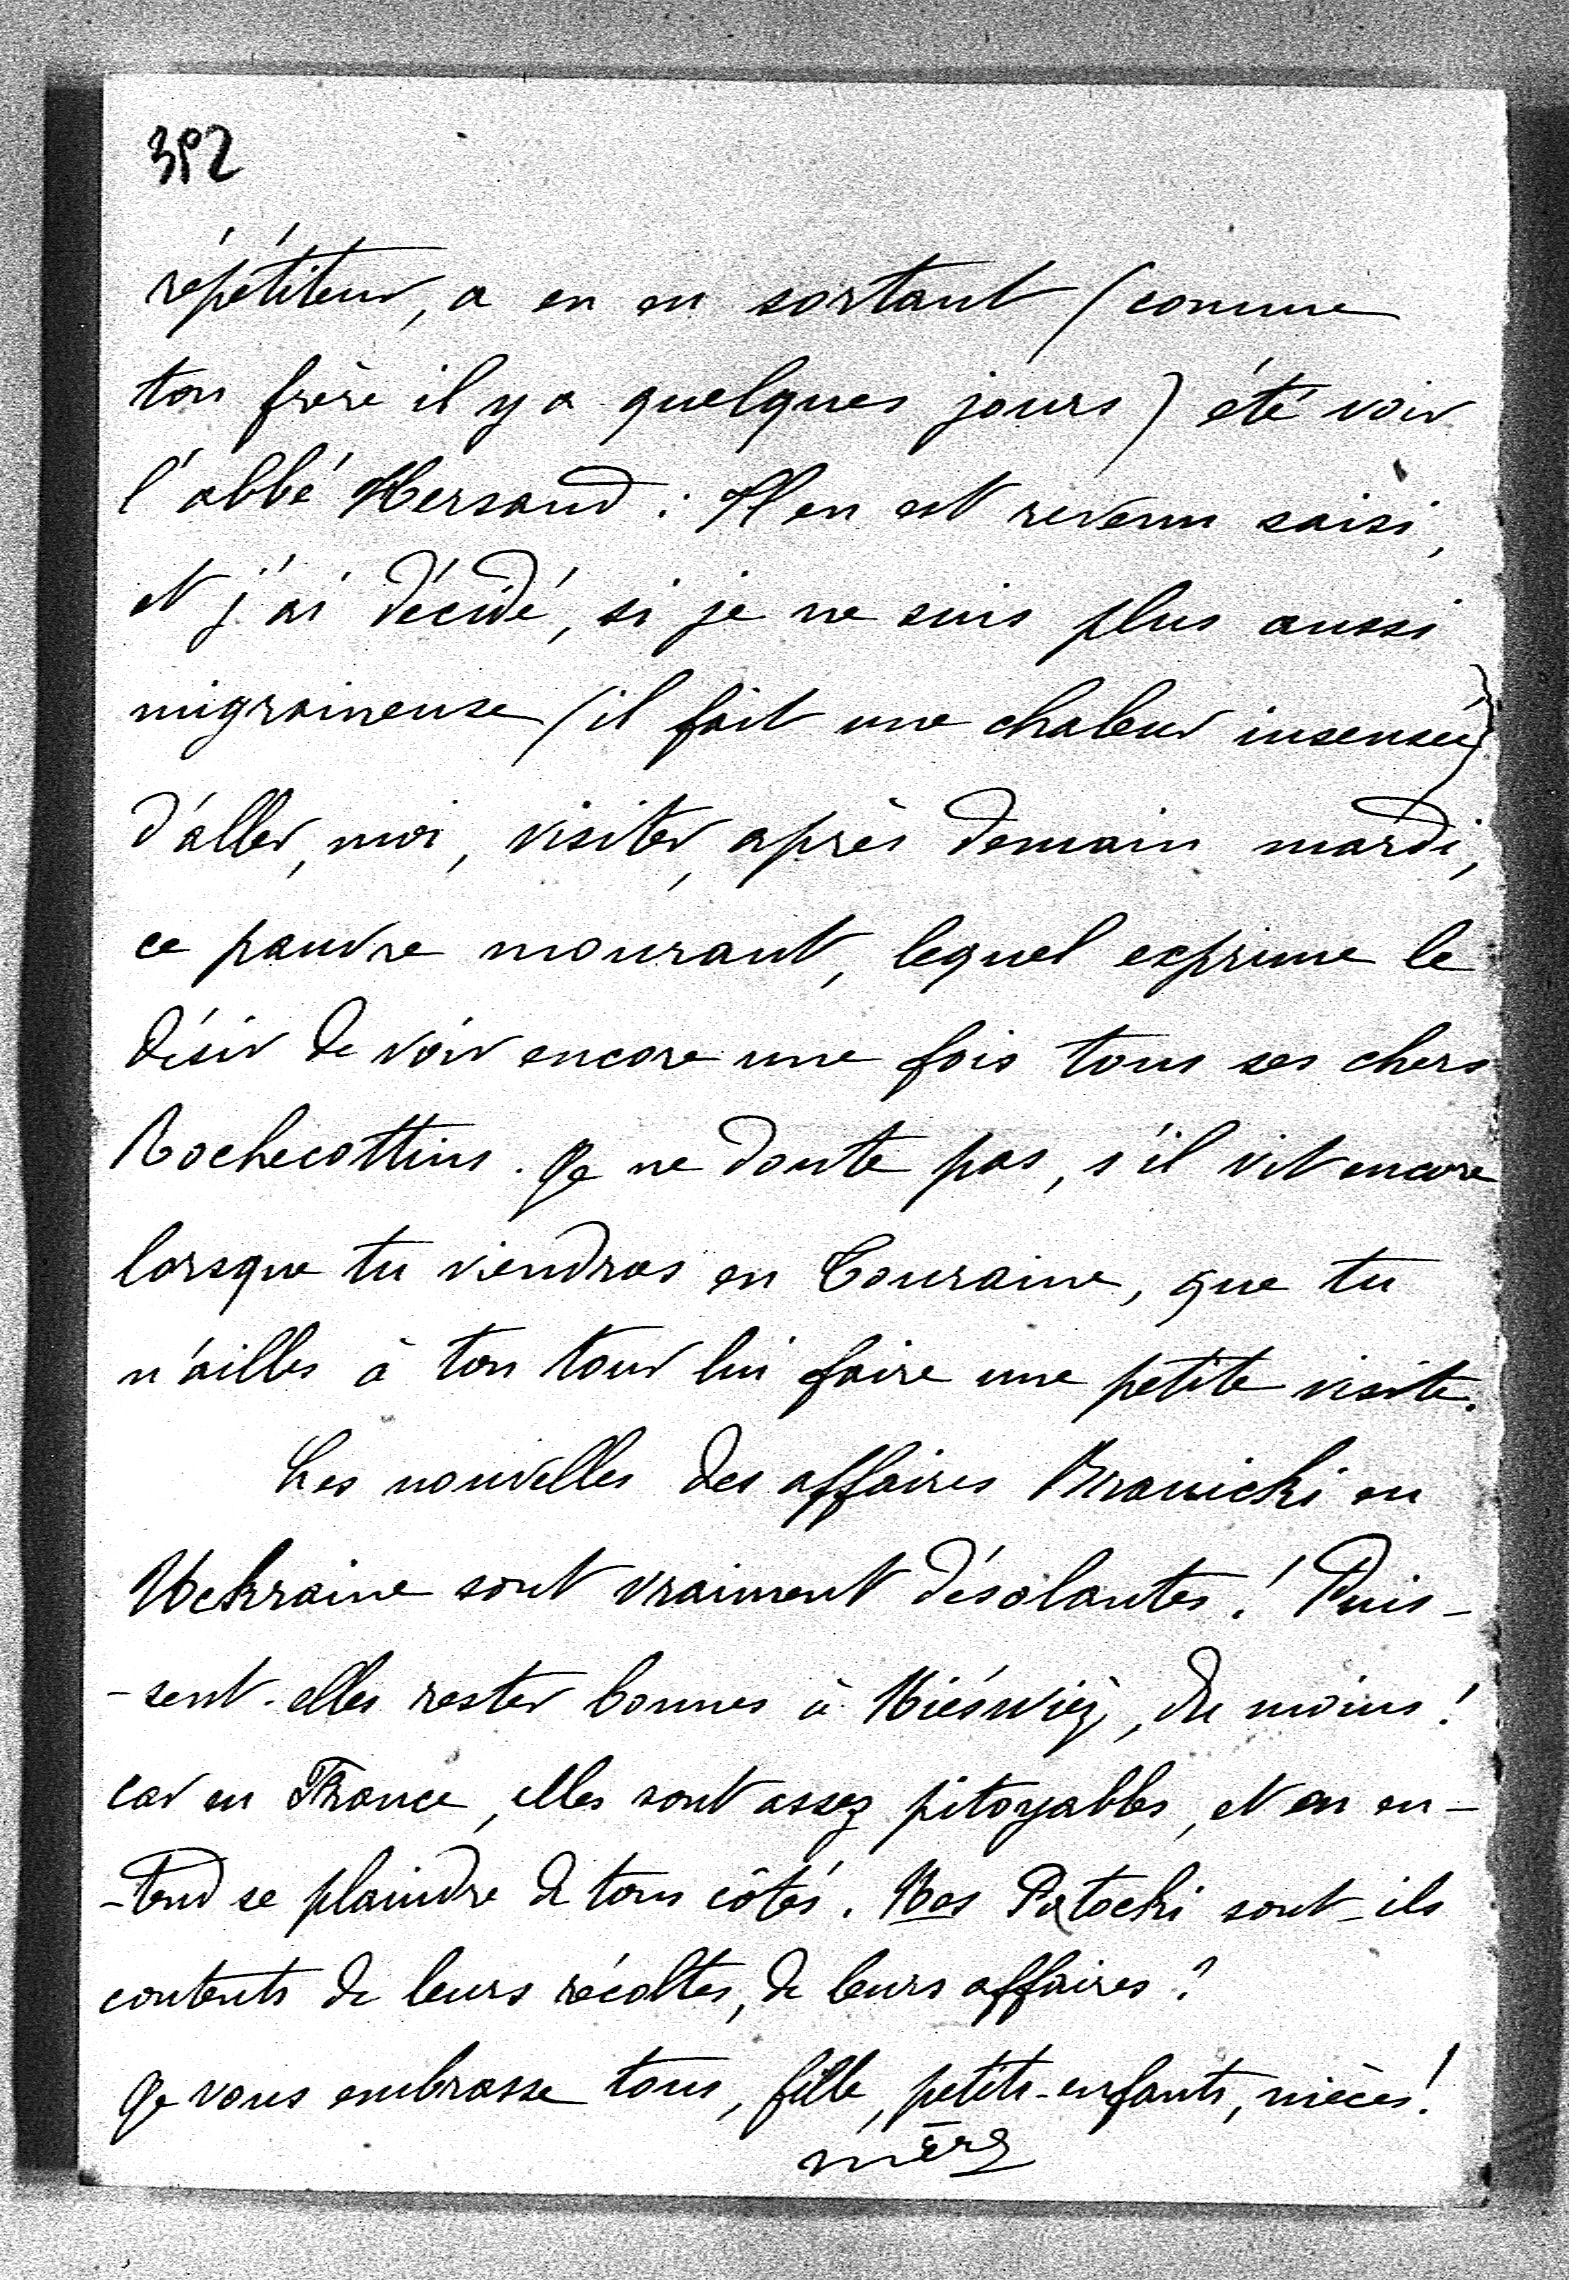 392
répétiteur, a en en sortant (comme
ton frère il y a quelques jours) été voir
l'abbé Hersand : Il en est revenu saisi,
et j'ai décidé, si je ne suis plus aussi
migraineuse (il fait une chaleur insensée)
d'aller, moi, visiter, après demain mardi,
ce pauvre mourant, lequel exprime le
désir de voir encore une fois tous ses chers
Rochecottins. Je ne doute pas, s'il vit encore
lorsque tu viendras en Touraine, que tu
n'ailles à ton tour lui faire une petite visite.
Les nouvelles des affaires Branicki en
Uckraine sont vraiment désolantes! Puis-
-sent-elles rester bonnes à Nieświéz, du moins!
car en France, elles sont assez pitoyables, et on en-
-tend se plaindre de tous côtés. Nos Potocki sont-ils
contents de leurs récoltes, de leurs affaires?
Je vous embrasse tous, fille, petits-enfants, nièces!
mère